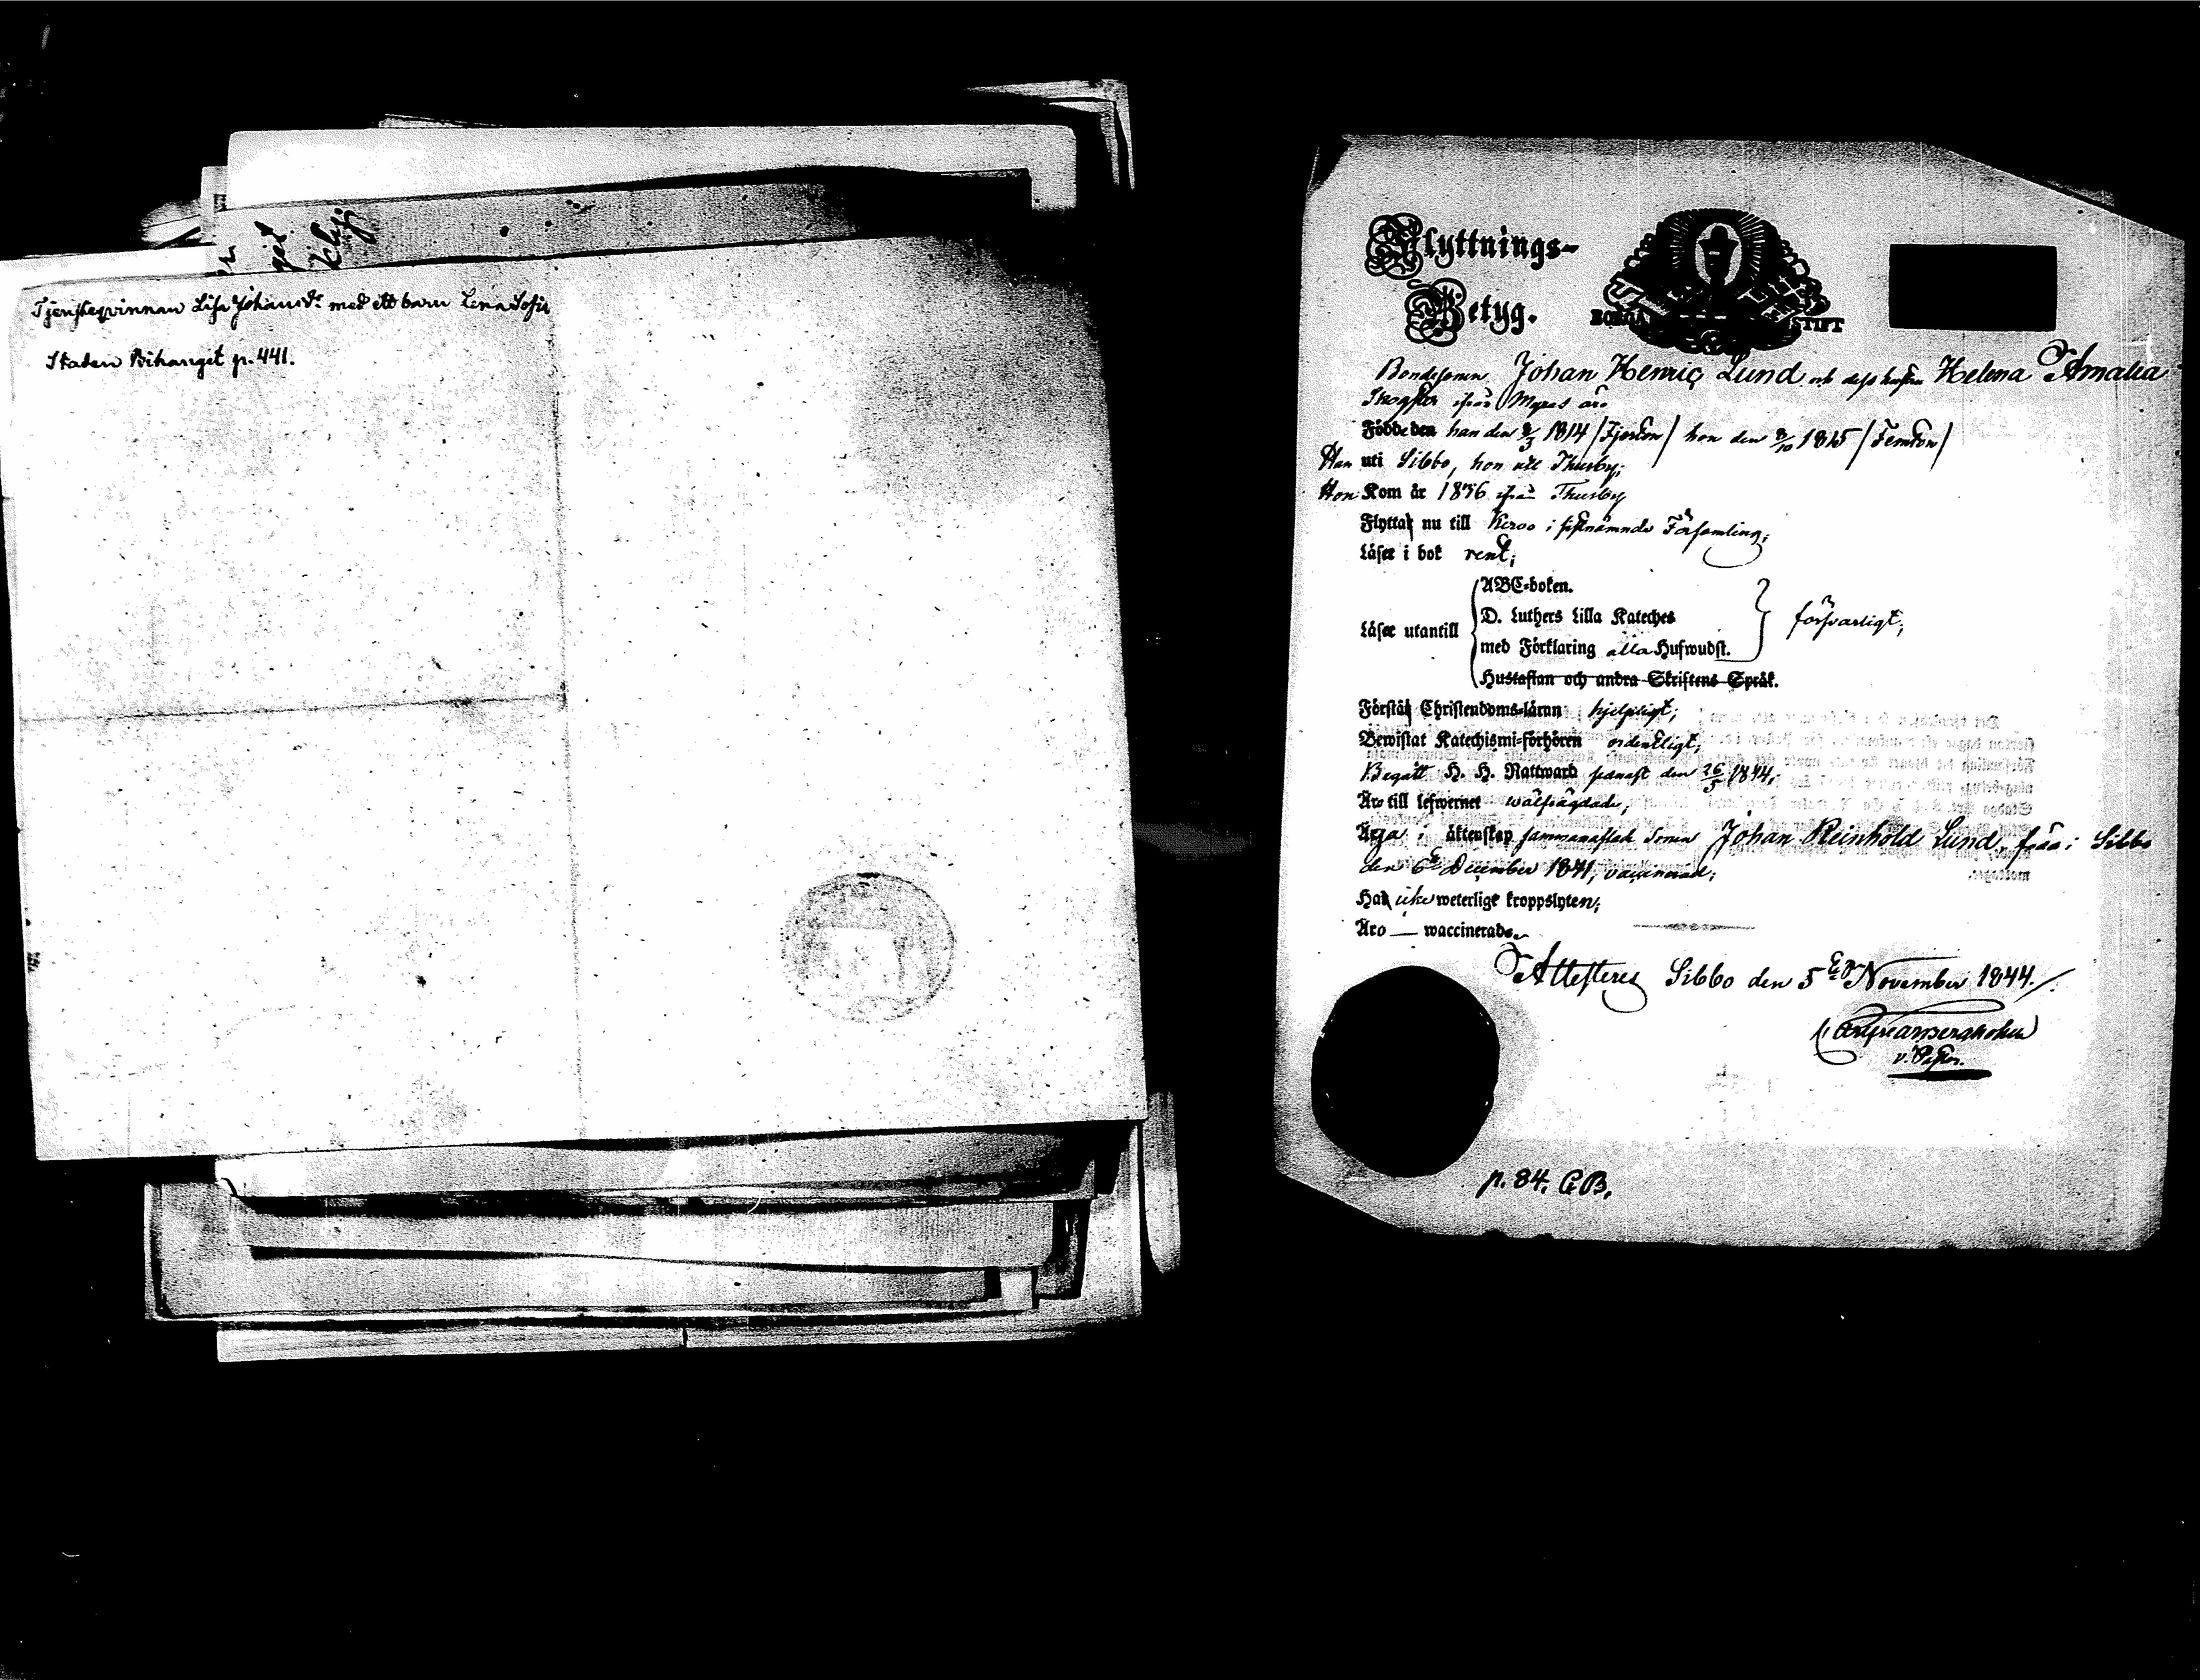 Tjensteqvinnan Lisa Johansdr med ett barn Lena Sofia
Staden Bihanget p. 441.
Flyttnings-
Betyg.
BORGÅ STIFT
Bondesonen Johan Henric Lund och dess hustru Helena Amalia
Skogster ifrån Myras äro
Födde den han den 2/3 1814 /Fjorton/ hon den 8/10 1815 /Femton/
Han uti Sibbo, hon uti Thusby;
Hon Kom år 1836 ifrån Thusby
Flytta nu till Kervo i sistnämnde Församling;
Läser i bok rent;
Läser utantill
ABC-boken.
D. Luthers Lilla Kateches
med Förklaring alla Hufwudst.
Hustaflan och andra Skriftens Språk.
försvarligt;
Förstå Christendoms-läran hjelpligt;
Bewistat Katechismi-förhören ordentligt;
Begått H. H. Nattward senast den 26/5 1844;
Äro till lefwernet wälfrägdade;
Äga i äktenskap sammanaflad Sonen Johan Reinhold Lund, född i Sibbo
den 6te December 1841, vaccinerad;
Ha icke weterlige kroppslyten;
Äro — waccinerade.
Attesteres Sibbo den 5te November 1844.
v. Pastor.
p. 84. G.B.